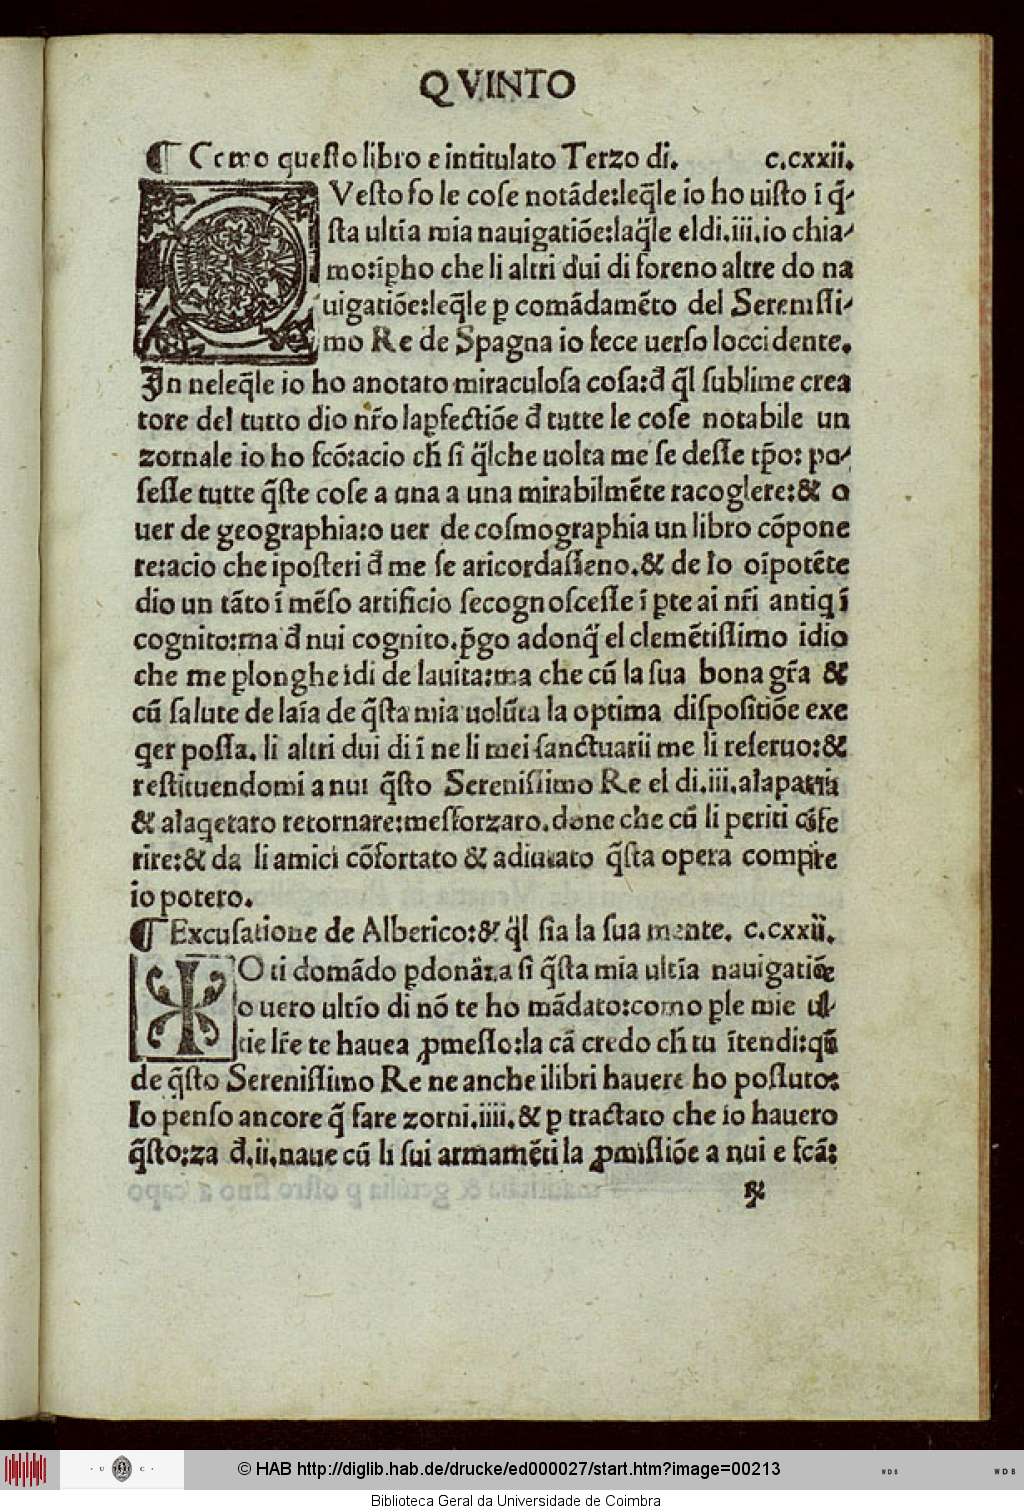 QVINTO
¶ Como questo libro e intitulato Terzo di. c.cxxii.
QVesto fo le cose notãde:leq̃le io ho uisto ĩ q̃-
sta ultĩa mia nauigatiõe:laq̃le eldi.iii.io chia-
mo:ĩꝑho che li altri dui di foreno altre do na
uigatiõe:leq̃le ꝑ comãdamẽto del Serenissi-
mo Re de Spagna io fece uerso loccidente.
In neleq̃le io ho anotato miraculosa cosa:đ q̃l sublime crea
tore del tutto dio nr̃o laꝑfectiõe đ tutte le cose notabile un
zornale io ho fcõ:acio ch̃ si q̃lche uolta me se desse tp̃o: po-
sesse tutte q̃ste cose a una a una mirabilmẽte racoglere:& o
uer de geographia:o uer de cosmographia un libro cõpone
re:acio che iposteri đ me se aricordasseno.& de lo oĩpotẽte
dio un tãto ĩ mẽso artificio secognoscesse ĩ ꝑte ai nr̃i antiq ĩ
cognito:ma đ nui cognito.p̃go adonq̃ el clemẽtissimo idio
che me ꝑlonghe idi de lauita:ma che cũ la sua bona gr̃a &
cũ salute de laĩa de q̃sta mia uolũta la optima dispositiõe exe
qer possa. li altri dui di ĩ ne li mei sanctuarii me li reseruo:&
restituendomi a nui q̃sto Serenissimo Re el di.iii.alapatria
& alaqetaro retornare:mesforzaro.done che cũ li periti cõfe
rire:& da li amici cõfortato & adiutato q̃sta opera compire
io potero.
¶ Excusatione de Alberico:& q̃l sia la sua mente. c.cxxii.
IO ti domãdo ꝑdonãza si q̃sta mia ultĩa nauigatiõe
o uero ultĩo di nõ te ho mãdato:como ꝑle mie ul-
tie lr̃e te hauea ꝓmesso:la cã credo ch̃ tu ĩtendi:qñ
de q̃sto Serenissimo Re ne anche ilibri hauere ho possuto:
Io penso ancore q̃ fare zorni.iiii.& ꝑ tractato che io hauero
q̃sto:za đ.ii.naue cũ li sui armamẽti la ꝓmissiõe a nui e fcã:
&
© HAB http://diglib.hab.de/drucke/ed000027/start.htm?image=00213
Biblioteca Geral da Universidade de Coimbra